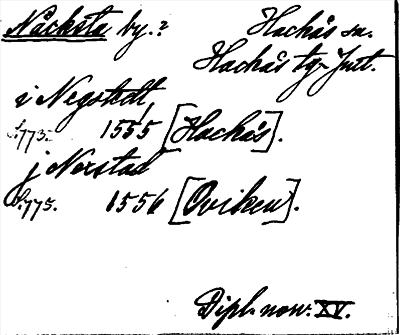 Näcksta by.? Hackås sn.
Hackås tg. Jmt.
i Negstedt,
s. 773. 1555 [Hackås].
j Nerstad
s. 775. 1556 [Oviken].
Dipl. norv. XV.